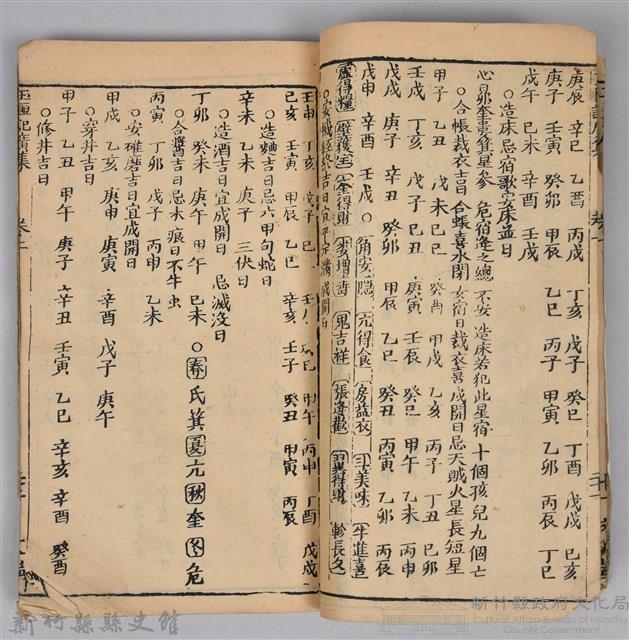 庚辰 辛巳 乙酉 丙戌 丁亥 戊子 癸巳 丁酉 戊戌 己亥
庚子 壬寅 癸卯 甲辰 乙巳 丙子 甲寅 乙卯 丙辰 丁巳
戊午 己未 辛酉 壬戌
○造床忌宿歌安床益日
心昴奎婁箕星參 危宿逢之總不安 造床若犯此星宿 十個孩兒九個亡
○合帳裁衣吉日 合帳喜水閉 女宿日裁衣喜成開日忌天賊火星長短星
甲子 乙丑 戊辰 己巳 癸酉 甲戌 乙亥 丙子 丁丑 己卯
癸巳 甲午 乙未 丙申
戊戌 庚子 辛丑 癸卯 甲辰 乙巳 癸丑 丙寅 丙辰
戊申 辛酉 壬戌 ○ 角安隱 亢得食 房益衣 斗美味 牛進喜
虛得糧 壁獲宝 奎得財 婁增壽 鬼吉祥 張逢歡 翼得財 軫長久
○安機經絡吉日宜平定滿成開日
壬申 丁亥 戊子 己巳 甲午 丙申 丁酉 戊戌
己亥 壬寅 甲辰 乙巳 辛亥 壬子 癸丑 甲寅 丙辰
○造麯吉日忌六甲句蛇日
辛未 乙未 庚子 三伏日
○造酒吉日宜成開日 忌滅沒日
丁卯 癸未 庚午 甲午 己未 ○春氐箕夏亢秋奎冬危
○合醬吉日忌水痕日不牛虫
丙寅 丁卯 戊子 丙申 乙未
○安碓磨吉日宜成開日
甲戌 乙亥 庚申 庚寅 辛酉 戊子 庚午
○穿井吉日
甲子 乙丑 甲午 庚子 辛丑 壬寅 乙巳 辛亥 辛酉 癸酉
○修井吉日
玉匣記廣集 卷二
新竹縣縣史館
新竹縣政府文化局
Cultural Affair Bureau of Hsinchu County Government